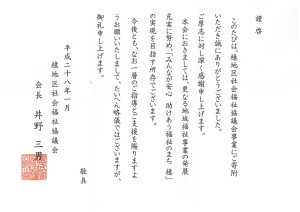 謹啓
このたびは、穂地区社会福祉協議会事業にご寄附
いただき誠にありがとうございました。
ご厚志に対し深く感謝申し上げます。
本会におきましては、更なる地域福祉事業の発展
充実に努め、「みんなが安心 助けあう福祉のまち 穂」
の実現を目指す所存でございます。
今後とも、なお一層のご指導とご支援を賜りますよ
うお願いいたしまして、たいへん略儀ではございますが、
御礼申し上げます。
敬具
平成二十八年一月
穂地区社会福祉協議会
会長 井野 三男